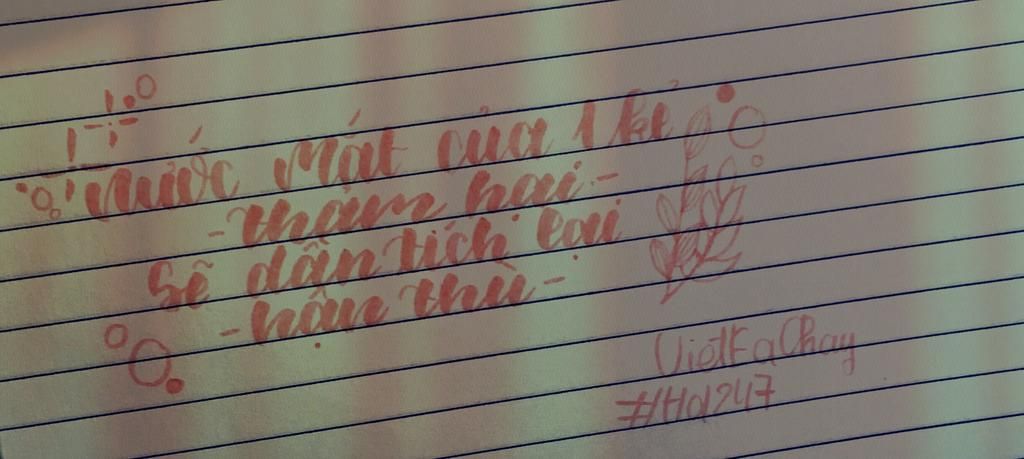 Nước Mắt của 1 kẻ
- thảm hại -
sẽ dần tích lại
- hận thù -
VietFaChay
#Hd247